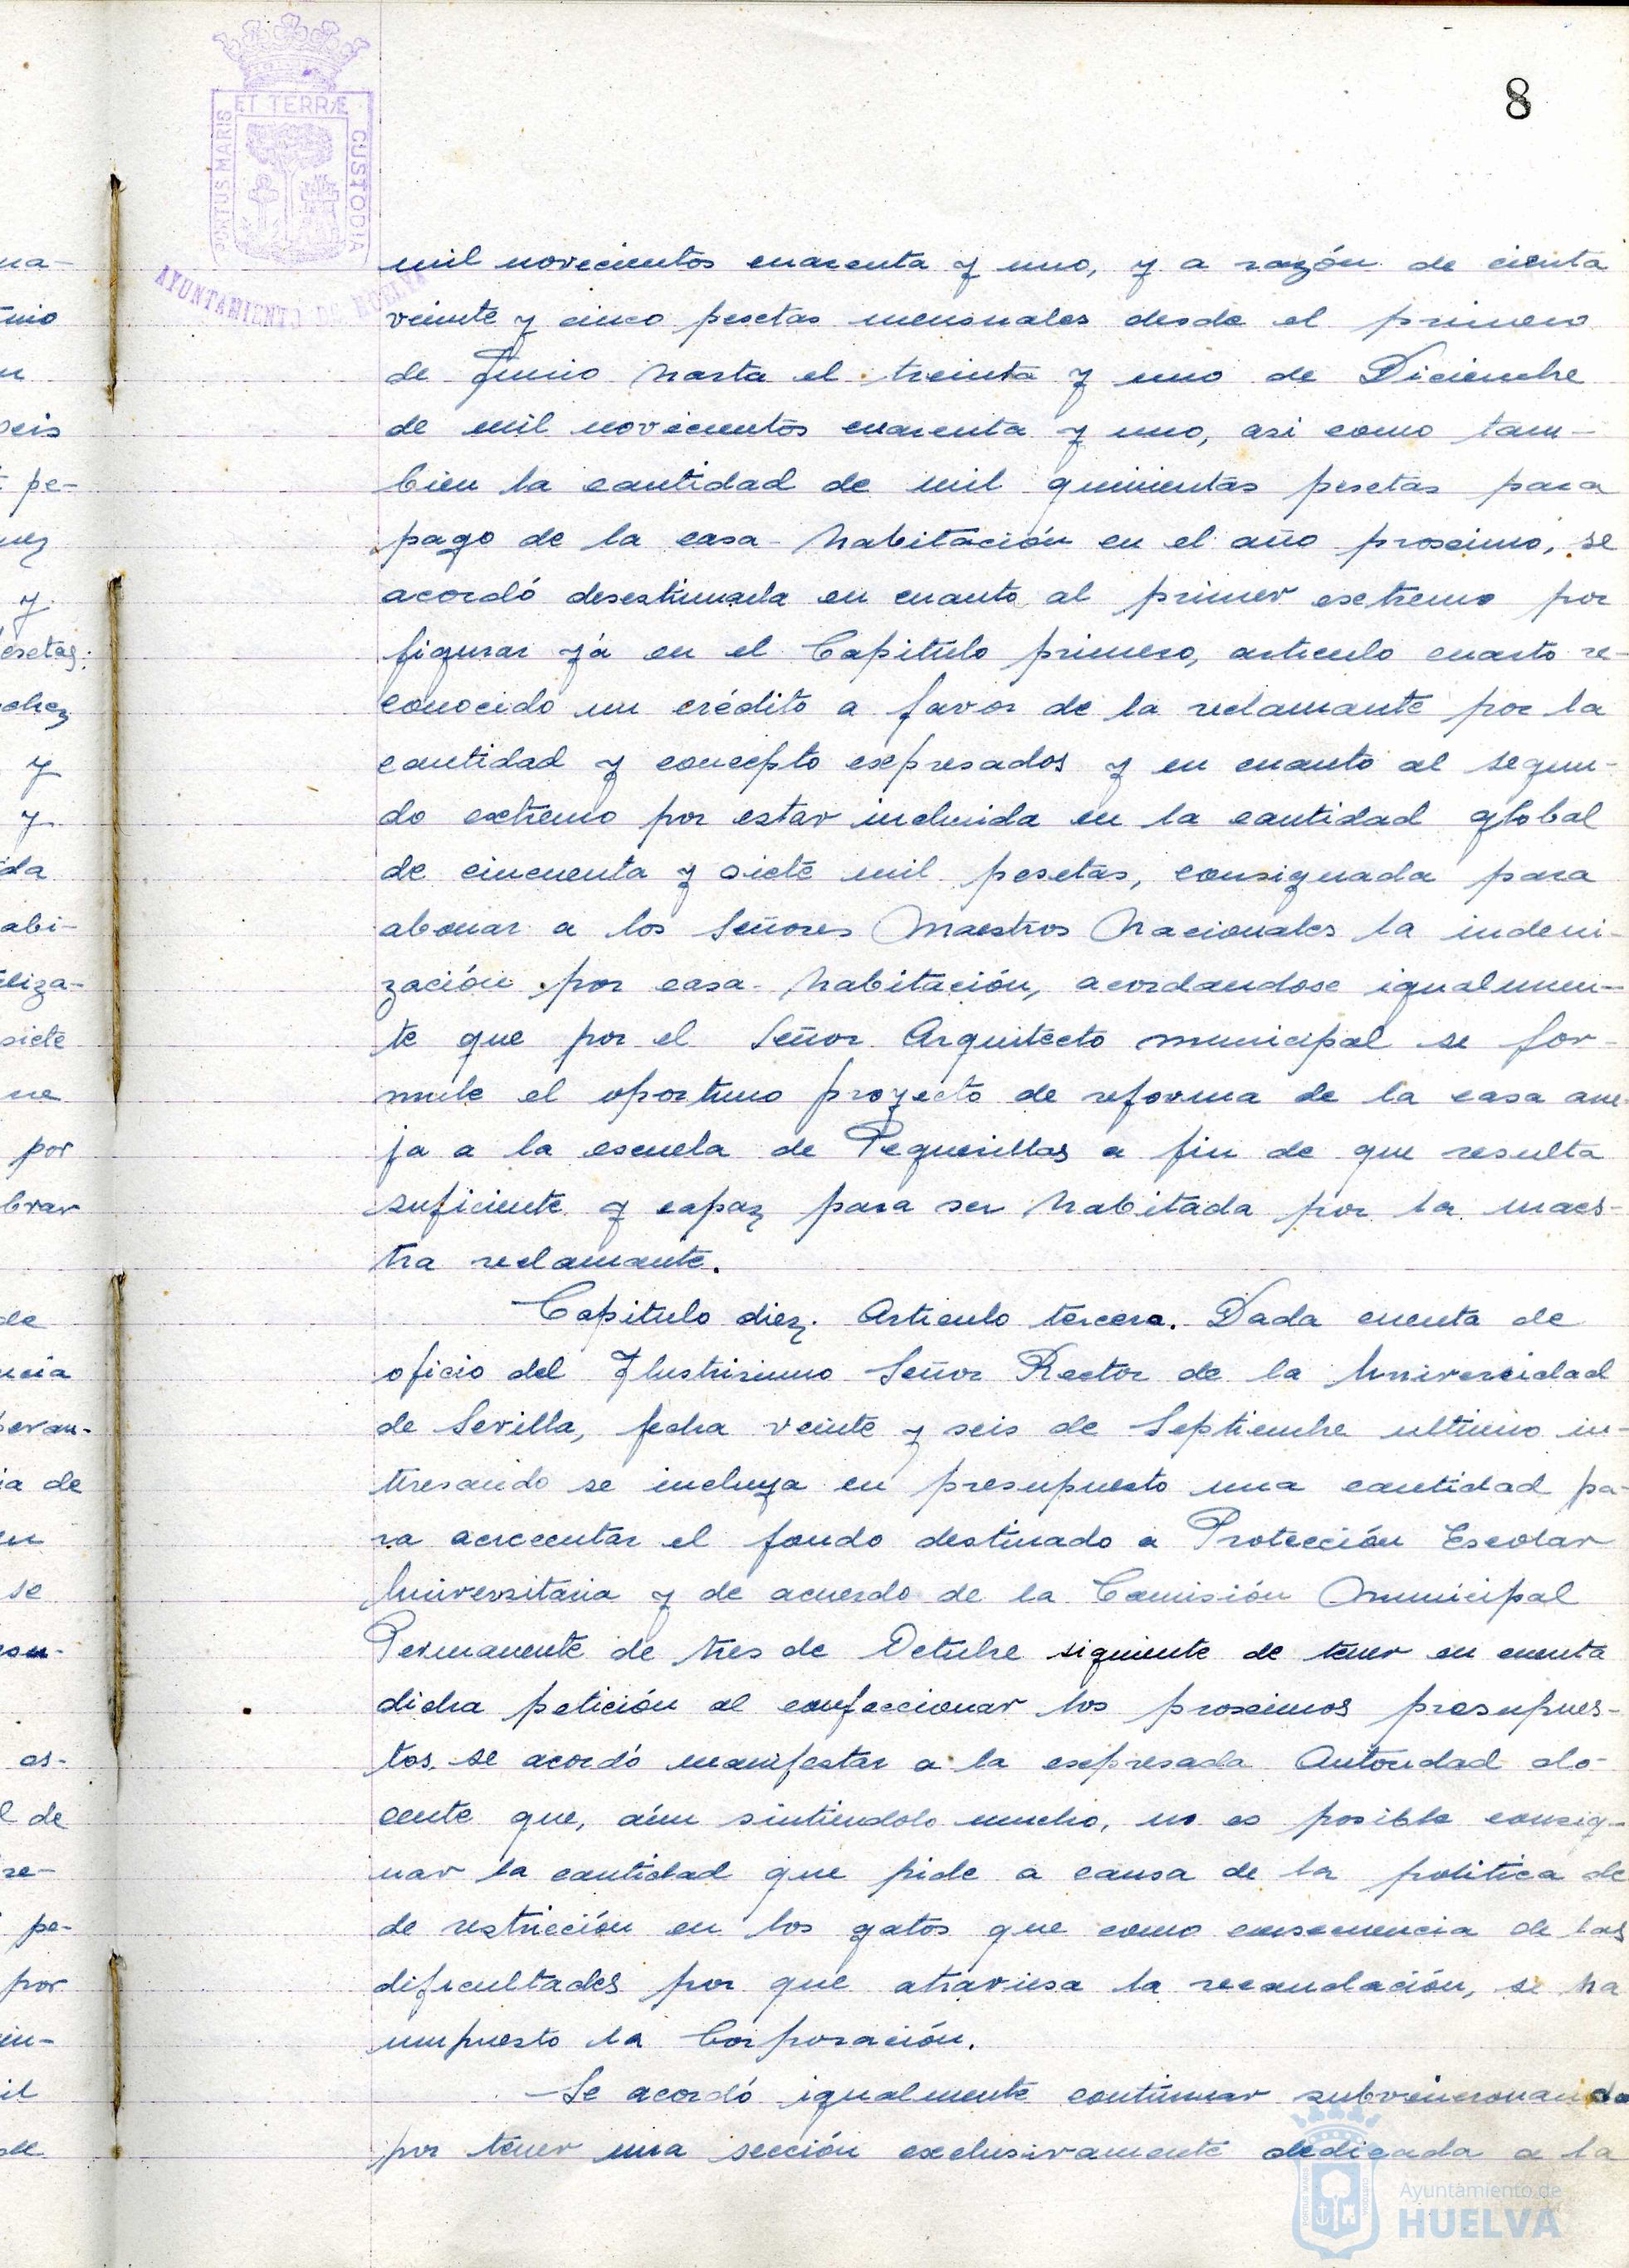 8
PORTUS MARIS ET TERRÆ CUSTODIA
AYUNTAMIENTO DE HUELVA
mil novecientos cuarenta y uno, y a razón de cienta
veinte y cinco pesetas mensuales desde el primero
de Junio hasta el treinta y uno de Diciembre
de mil novecientos cuarenta y uno, asi como tam-
bien la cantidad de mil quinientas pesetas para
pago de la casa-habitación en el año proximo, se
acordó desestimarla en cuanto al primer extremo por
figurar yá en el Capitulo primero, articulo cuarto re-
conocido un crédito a favor de la reclamante por la
cantidad y concepto expresados y en cuanto al segun-
do extremo por estar incluida en la cantidad global
de cincuenta y siete mil pesetas, consignada para
abonar a los Señores Maestros Nacionales la indeni-
zación por casa-habitación, acordandose igualmen-
te que por el Señor Arquitecto municipal se for-
mule el oportuno proyecto de reforma de la casa ane-
ja a la escuela de Pequerillas a fin de que resulta
suficiente y capaz para ser habitada por la maes-
tra reclamante.
Capitulo diez. Articulo tercero. Dada cuenta de
oficio del Ilustrisimo Señor Rector de la Universidad
de Sevilla, fecha veinte y seis de Septiembre ultimo in-
teresando se incluya en presupuesto una cantidad pa-
ra acrecentar el fondo destinado a Protección Escolar
Universitaria y de acuerdo de la Comisión Municipal
Permanente de tres de Octubre siguiente de tener en cuenta
dicha petición al confeccionar los proximos presupues-
tos, se acordó manifestar a la expresada Autoridad do-
cente que, aún sintiendolo mucho, no es posible consig-
nar la cantidad que pide a causa de la politica de
de restricción en los gatos que como consecuencia de las
dificultades por que atraviesa la recaudación, se ha
impuesto la Corporación.
Se acordó igualmente continuar subvencionando
por tener una sección exclusivamente dedicada a la
Ayuntamiento de
HUELVA